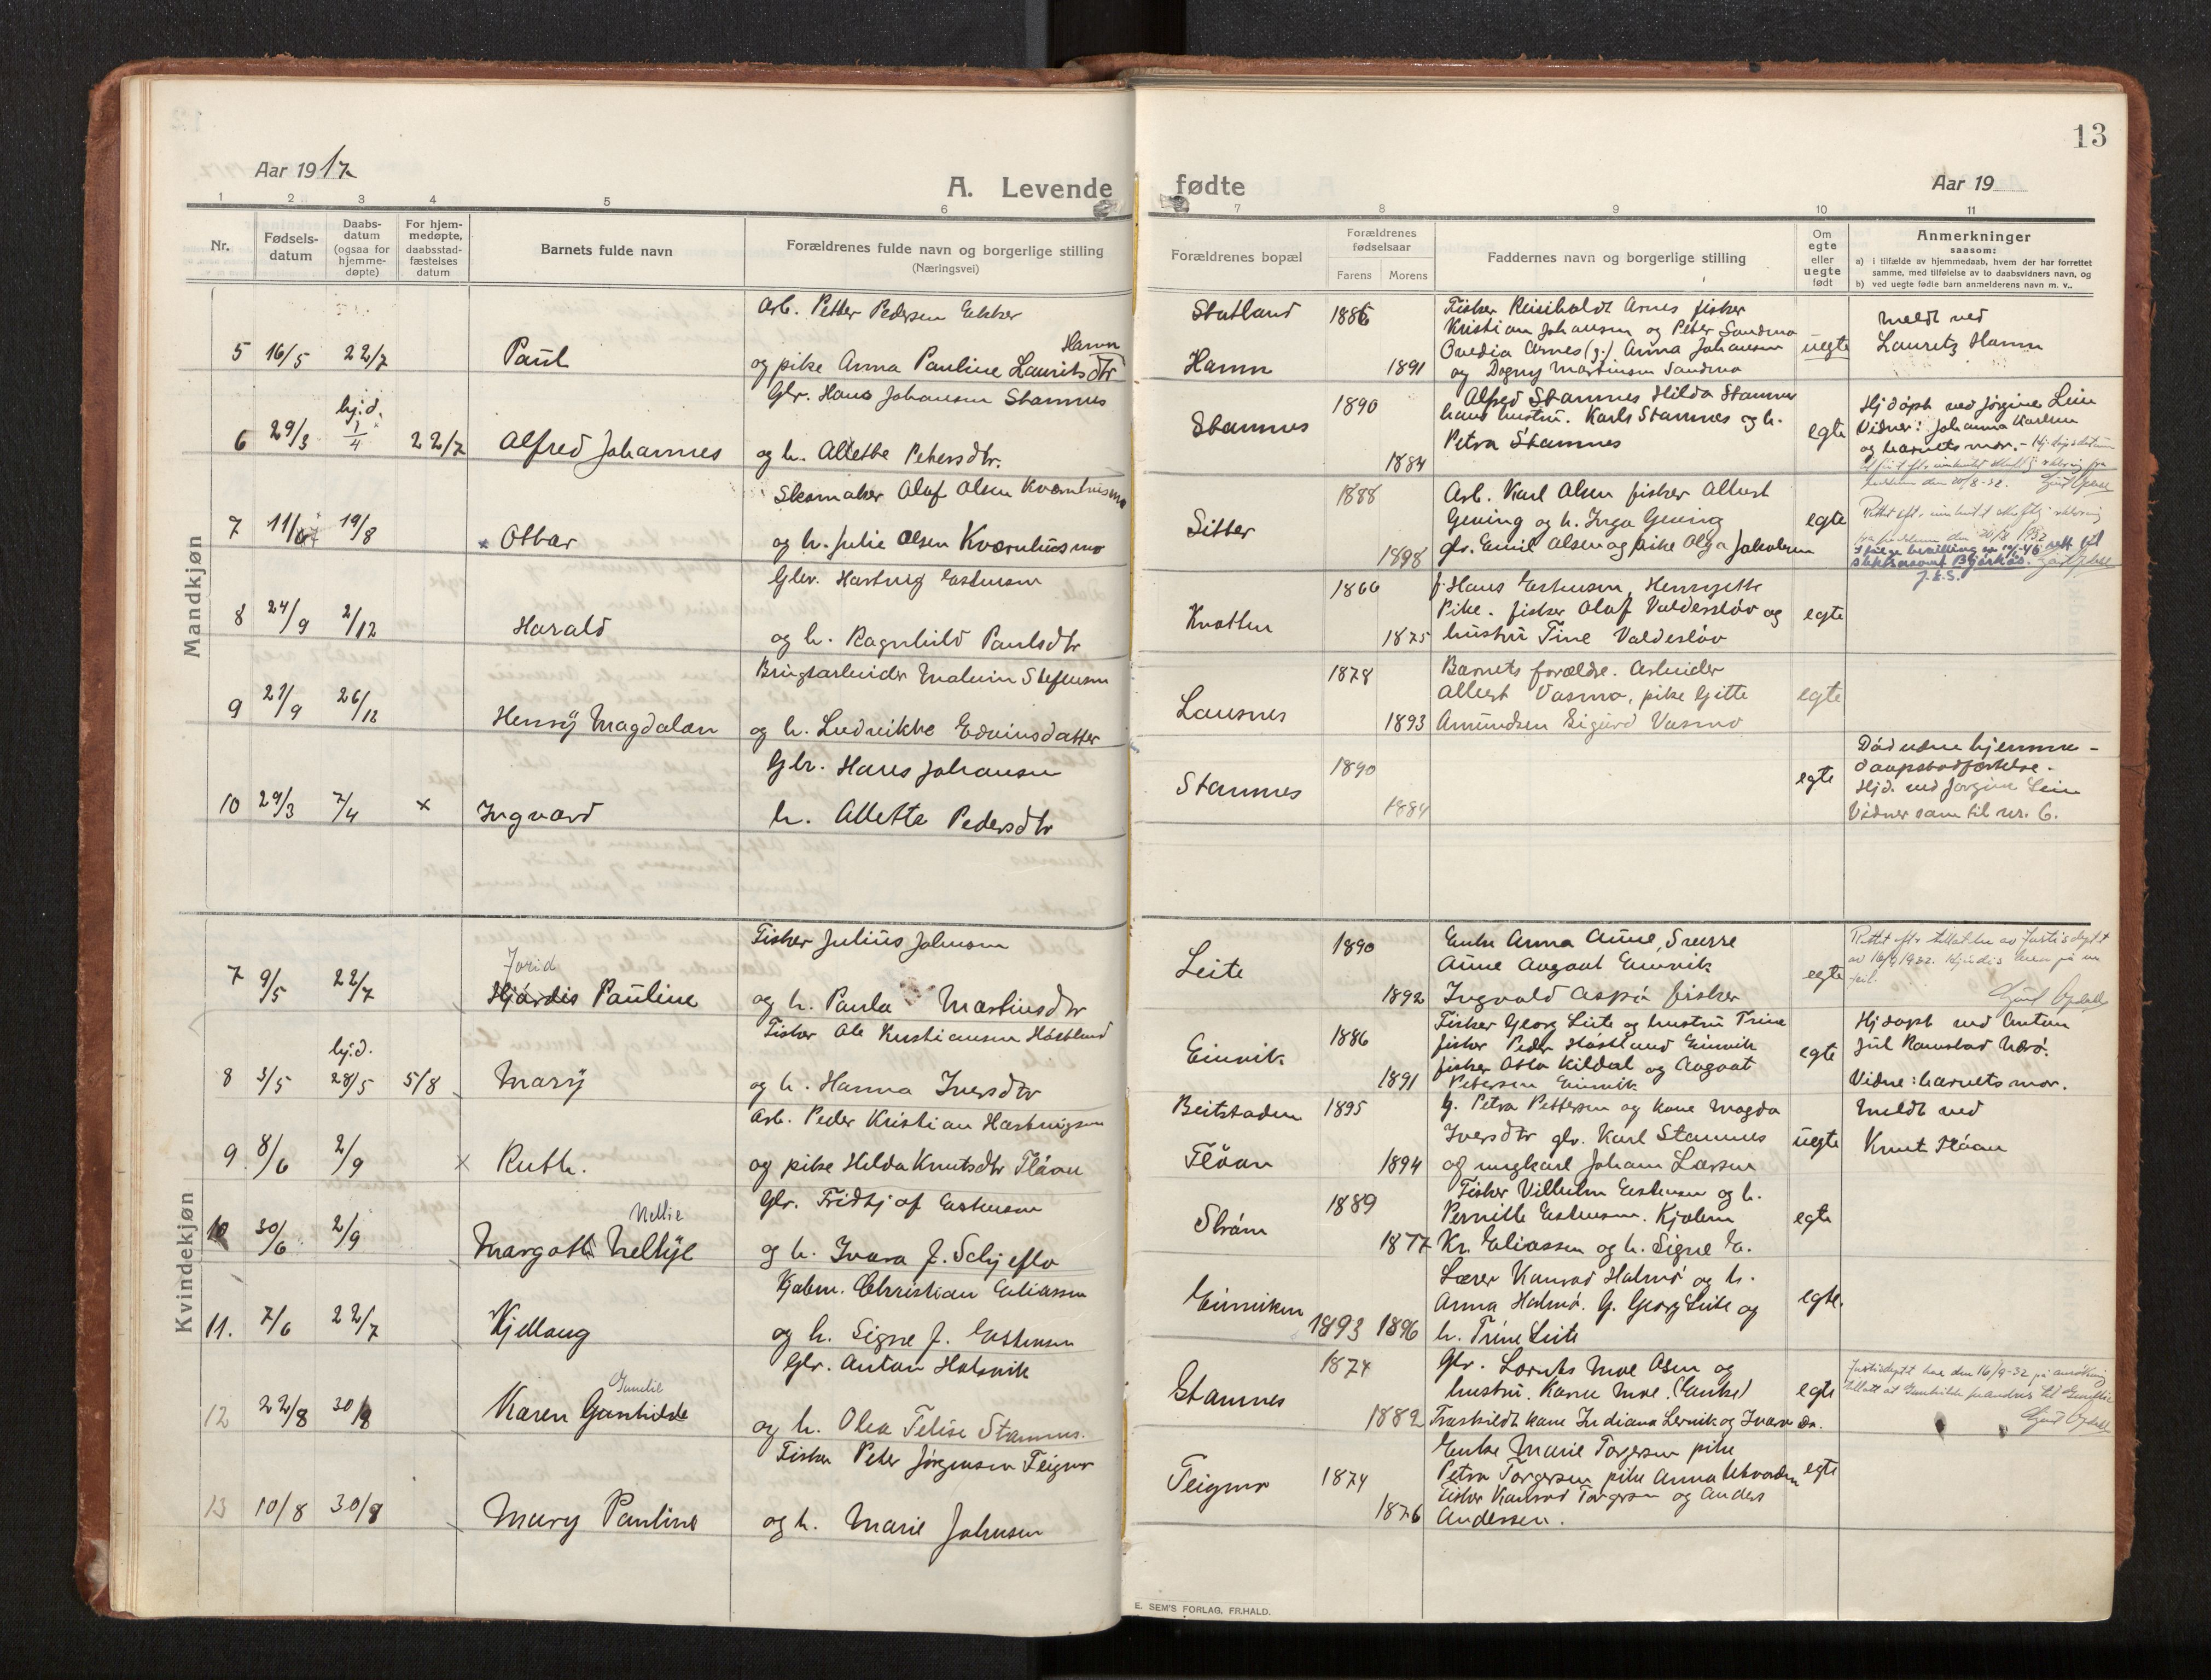 13
Aar 1917
A. Levende fødte
Aar 19
1 2 3 4 5 6 7 8 9 10 11
Nr.
Fødsels-
datum
Daabs-
datum
(ogsaa for
hjemme-
døpte)
For hjem-
medøpte,
daabsstad-
fæstelses
datum
Barnets fulde navn
Forældrenes fulde navn og borgerlige stilling
(Næringsvei)
Forældrenes bopæl
Forældrenes
fødselsaar
Farens Morens
Faddernes navn og borgerlige stilling
Om
egte
eller
uegte
født
Anmerkninger
saasom:
a) i tilfælde av hjemmedaab, hvem der har forrettet
samme, med tilføielse av to daabsvidners navn, og
b) ved uegte fødte barn anmelderens navn m. v..
Mandkjøn
5 16/5 22/7 Paul
Arb. Petter Pedersen
Hamn
og pike Anna Pauline Lauritsdtr
Statland 1886
Hamn 1891
Fisker Reinholdt Arnes fisker
Kristian Johansen og Peter Sandmo
Ovedia Arnes (g.) Anna Johansen
og Dagny Martinsen Sandmo
uegte
Meldt ved
Lauritz Hamn
6 29/3 hj.d. 1/4 22/7 Alfred Johannes
Gbr. Hans Johansen Stamnes
og h. Allette Petersdtr.
Stamnes 1890 1884
Alfred Stamnes Hilda Stamnes
hans hustru. Karl Stamnes og h.
Petra Stamnes
egte
Hjdøpt ved Jørgine Lein
Vidner: Johanna Karlsen
og barnets mor.
7 11/ 19/8 Ottar
Skomaker Olaf Olsen Kvarnhusmo
og h. Julie Olsen Kvarnhusmo
Sitter 1888 1898
Arb. Karl Olsen fisker Albert
Geving og h. Inga Geving
gbr. Emil Olsen og pike Olga Jakobsen
egte
8 24/9 2/12 Harald
Gbr. Hartvig Estensen
og h. Ragnhild Paulsdtr
1866 1875
Hans Estensen,
Pike. fisker Olaf Valdersløv og
hustru Tine Valdersløv
egte
9 27/9 26/12 Henry Magdalon
Brugsarbeider Malvin Steffensen
og h. Ludvikke Edvinsdatter
Lausnes 1878 1893
Barnets forældre. Arbeider
Albert Vasmo, pike Gitte
Amundsen Sigurd Vasmo
egte
10 29/3 7/4 x Ingvard
Gbr. Hans Johansen
h. Allette Pedersdtr
Stamnes 1890 1884
egte
Død uden hjemme-
daapstadfæstelse.
Hjd. ved Jørgine Lein
Vidner som til nr. 6.
Kvindekjøn
7 9/5 22/7
Jorid
Hjørdis Pauline
Fisker Julius Johnsen
og h. Paula Martinsdtr
Leite 1890 1892
Enke Anna Aune, Sverre
Aune August Einvik
Ingvald Aspå fisker
egte
8 3/5 hj.d. 28/5 5/8 Mary
Fisker Ole Kristiansen Høstland
og h. Hanna Iversdtr
Einvik 1886 1891
Fisker Georg Leite og hustru Trine
fisker Peder Høstland Einvik
fisker Otto Kildal og August
Petersen Einvik
egte
Hjdøpt ved Anton
Jul Ramstad Nærø.
Vidne: barnets mor.
9 8/6 2/9 x Ruth.
Arb. Peder Kristian Hartvigsen
og pike Hilda Knutsdtr Fløan
Beitstaden 1895
Fløan 1894
g. Petra Pettersen og kone Magda
Iversdtr gbr. Karl Stamnes
og ungkarl Johan Larsen
uegte
Meldt ved
Knut Fløan
10 30/6 2/9
Nellie
Margoth Nellije
Gbr. Fridtjof Estensen
og h. Ivara J. Schjeflo
Strøm 1889 1877
Fisker Vilhelm Estensen og h.
Pernille Estensen. Kjøbm
Kr. Eliassen og h. Signe E.
egte
11. 7/6 22/7 Kjellaug
Kjøbm. Christian Eliassen
og h. Signe J. Estensen
Einviken 1893 1896
Lærer Konrad Holmø og h.
Anna Holmø. G. Georg Leite og
h. Trine Leite
egte.
12 22/8 30/9
Gunelie
Karen Gunhilde
Gbr. Anton Holsvik
og h. Olea Felise Stamnes.
Stamnes 1874 1882
Gbr. Lornts Moe Osen og
hustru. Karen Moe. (Enke)
Fraskildt kone Indiana Lervik og Ivar
egte
13 10/8 30/9 Mary Pauline
Fisker Peter Jørgensen Feigmo
og h. Marie Johnsen
Feigmo 1874 1876
Enke Marie Torgersen pike
Petra Torgersen pike Anna
Fisker Konrad Torgersen og Anders
Andersen.
egte
E. SEM'S FORLAG, FR.HALD.